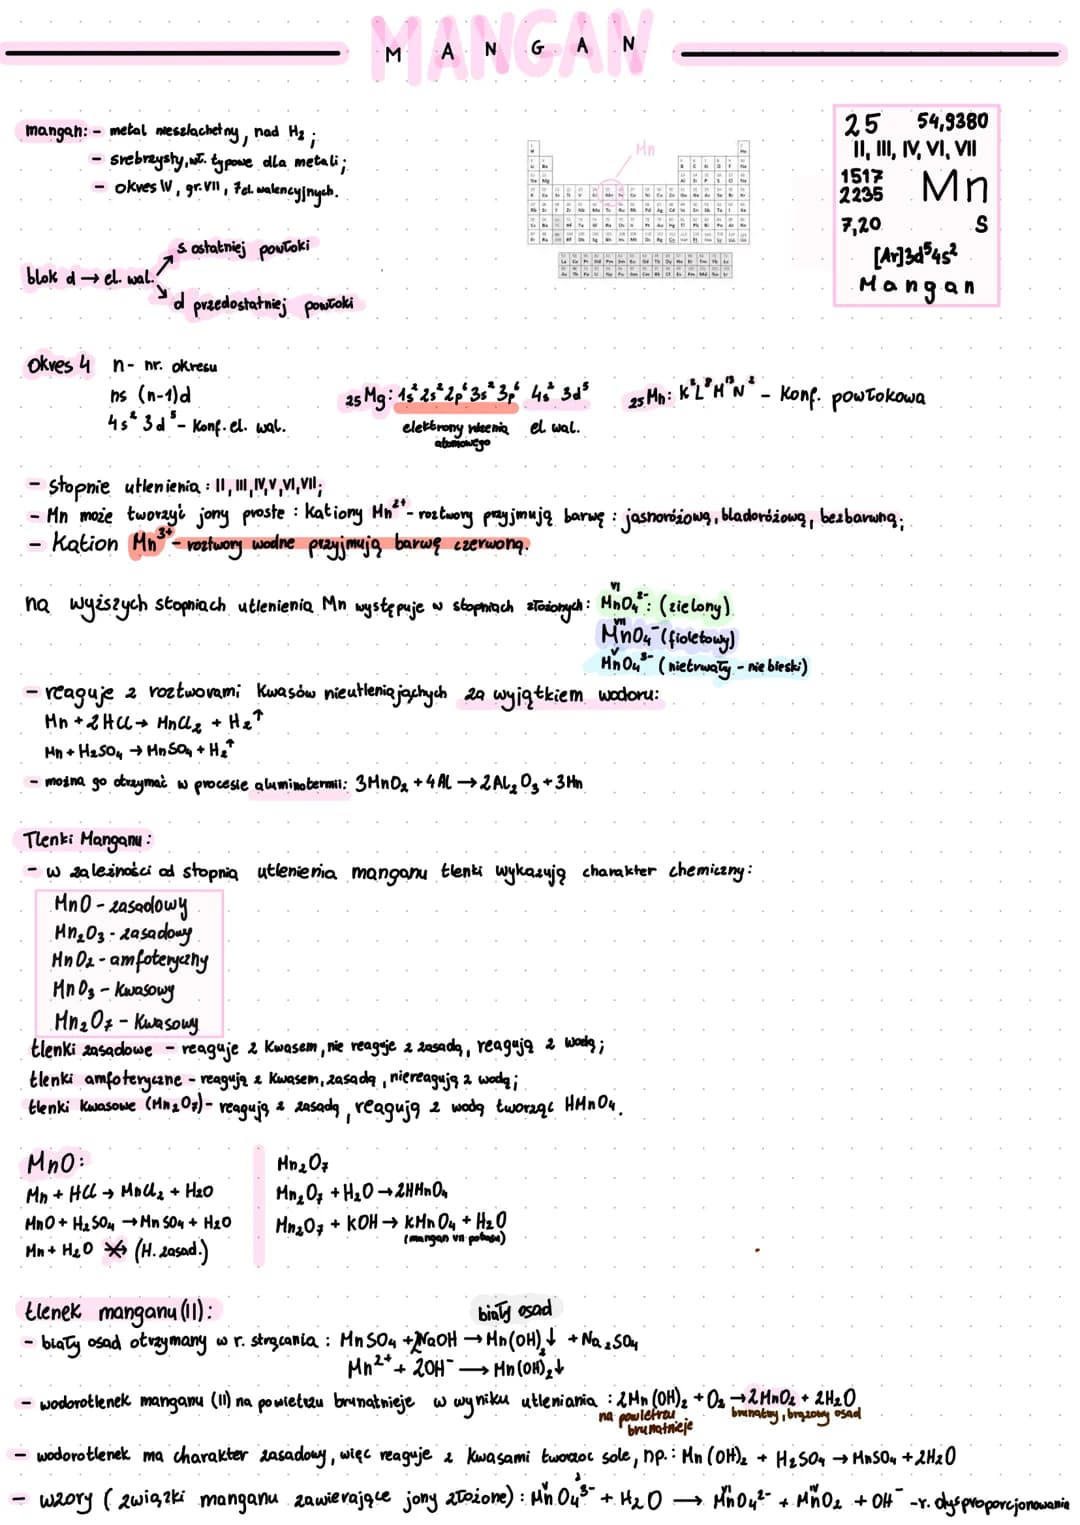 MANGAN
mangan: - metal nieszlachetny, nad H₂ ;
- srebrzysty, wł. typowe dla metali;
- okres IV, gr. VII, 7 el. walencyjnych.
Mn
25 54,9380
II, III, IV, VI, VII
1517
2235 Mn
7,20 S
[Ar]3d⁵4s²
Mangan
s ostatniej powłoki
blok d → el. wal.
d przedostatniej powłoki
Okres 4 n - nr. okresu
ns (n-1)d
4s² 3d⁵ - konf. el. wal.
₂₅Mg: 1s² 2s² 2p⁶ 3s² 3p⁶ 4s² 3d⁵
elektrony rdzenia atomowego el. wal.
₂₅Mn: K²L⁸M¹³N² - konf. powłokowa
- stopnie utlenienia : II, III, IV, V, VI, VII;
- Mn może tworzyć jony proste : kationy Mn²⁺ - roztwory przyjmują barwę : jasnoróżową, bladoróżową, bezbarwną;
- Kation Mn³⁺ - roztwory wodne przyjmują barwę czerwoną.
na wyższych stopniach utlenienia Mn występuje w stopniach złożonych: MnO₄²⁻: (zielony) VI
VII MnO₄⁻ (fioletowy)
V MnO₄³⁻ (nietrwały - niebieski)
- reaguje z roztworami kwasów nieutleniających za wyjątkiem wodoru:
Mn + 2HCl → MnCl₂ + H₂↑
Mn + H₂SO₄ → MnSO₄ + H₂↑
- można go otrzymać w procesie aluminotermii: 3MnO₂ + 4Al → 2Al₂O₃ + 3Mn
Tlenki Manganu :
- w zależności od stopnia utlenienia manganu tlenki wykazują charakter chemiczny:
MnO - zasadowy
Mn₂O₃ - zasadowy
MnO₂ - amfoteryczny
MnO₃ - kwasowy
Mn₂O₇ - kwasowy
tlenki zasadowe - reaguje z kwasem, nie reaguje z zasadą, reagują z wodą ;
tlenki amfoteryczne - reagują z kwasem, zasadą, niereagują z wodą ;
tlenki kwasowe (Mn₂O₇) - reagują z zasadą, reagują z wodą tworząc HMnO₄.
MnO:
Mn + HCl → MnCl₂ + H₂O
MnO + H₂SO₄ → MnSO₄ + H₂O
Mn + H₂O ↛ (H. zasad.)
Mn₂O₇
Mn₂O₇ + H₂O → 2HMnO₄
Mn₂O₇ + KOH → KMnO₄ + H₂O
(mangan VII potasu)
tlenek manganu (II):
biały osad
- biały osad otrzymany w r. strącania : MnSO₄ + 2NaOH → Mn(OH)₂↓ + Na₂SO₄
Mn²⁺ + 2OH⁻ → Mn(OH)₂↓
- wodorotlenek manganu (II) na powietrzu brunatnieje w wyniku utleniania : 2Mn(OH)₂ + O₂ → 2MnO₂ + 2H₂O
na powietrzu brunatnieje brunatny, brązowy osad
- wodorotlenek ma charakter zasadowy, więc reaguje z kwasami tworząc sole, np. : Mn(OH)₂ + H₂SO₄ → MnSO₄ + 2H₂O
- wzory (związki manganu zawierające jony złożone) : MnO₄³⁻ + H₂O → MnO₄²⁻ + MnO₂ + OH⁻ - r. dysproporcjonowania